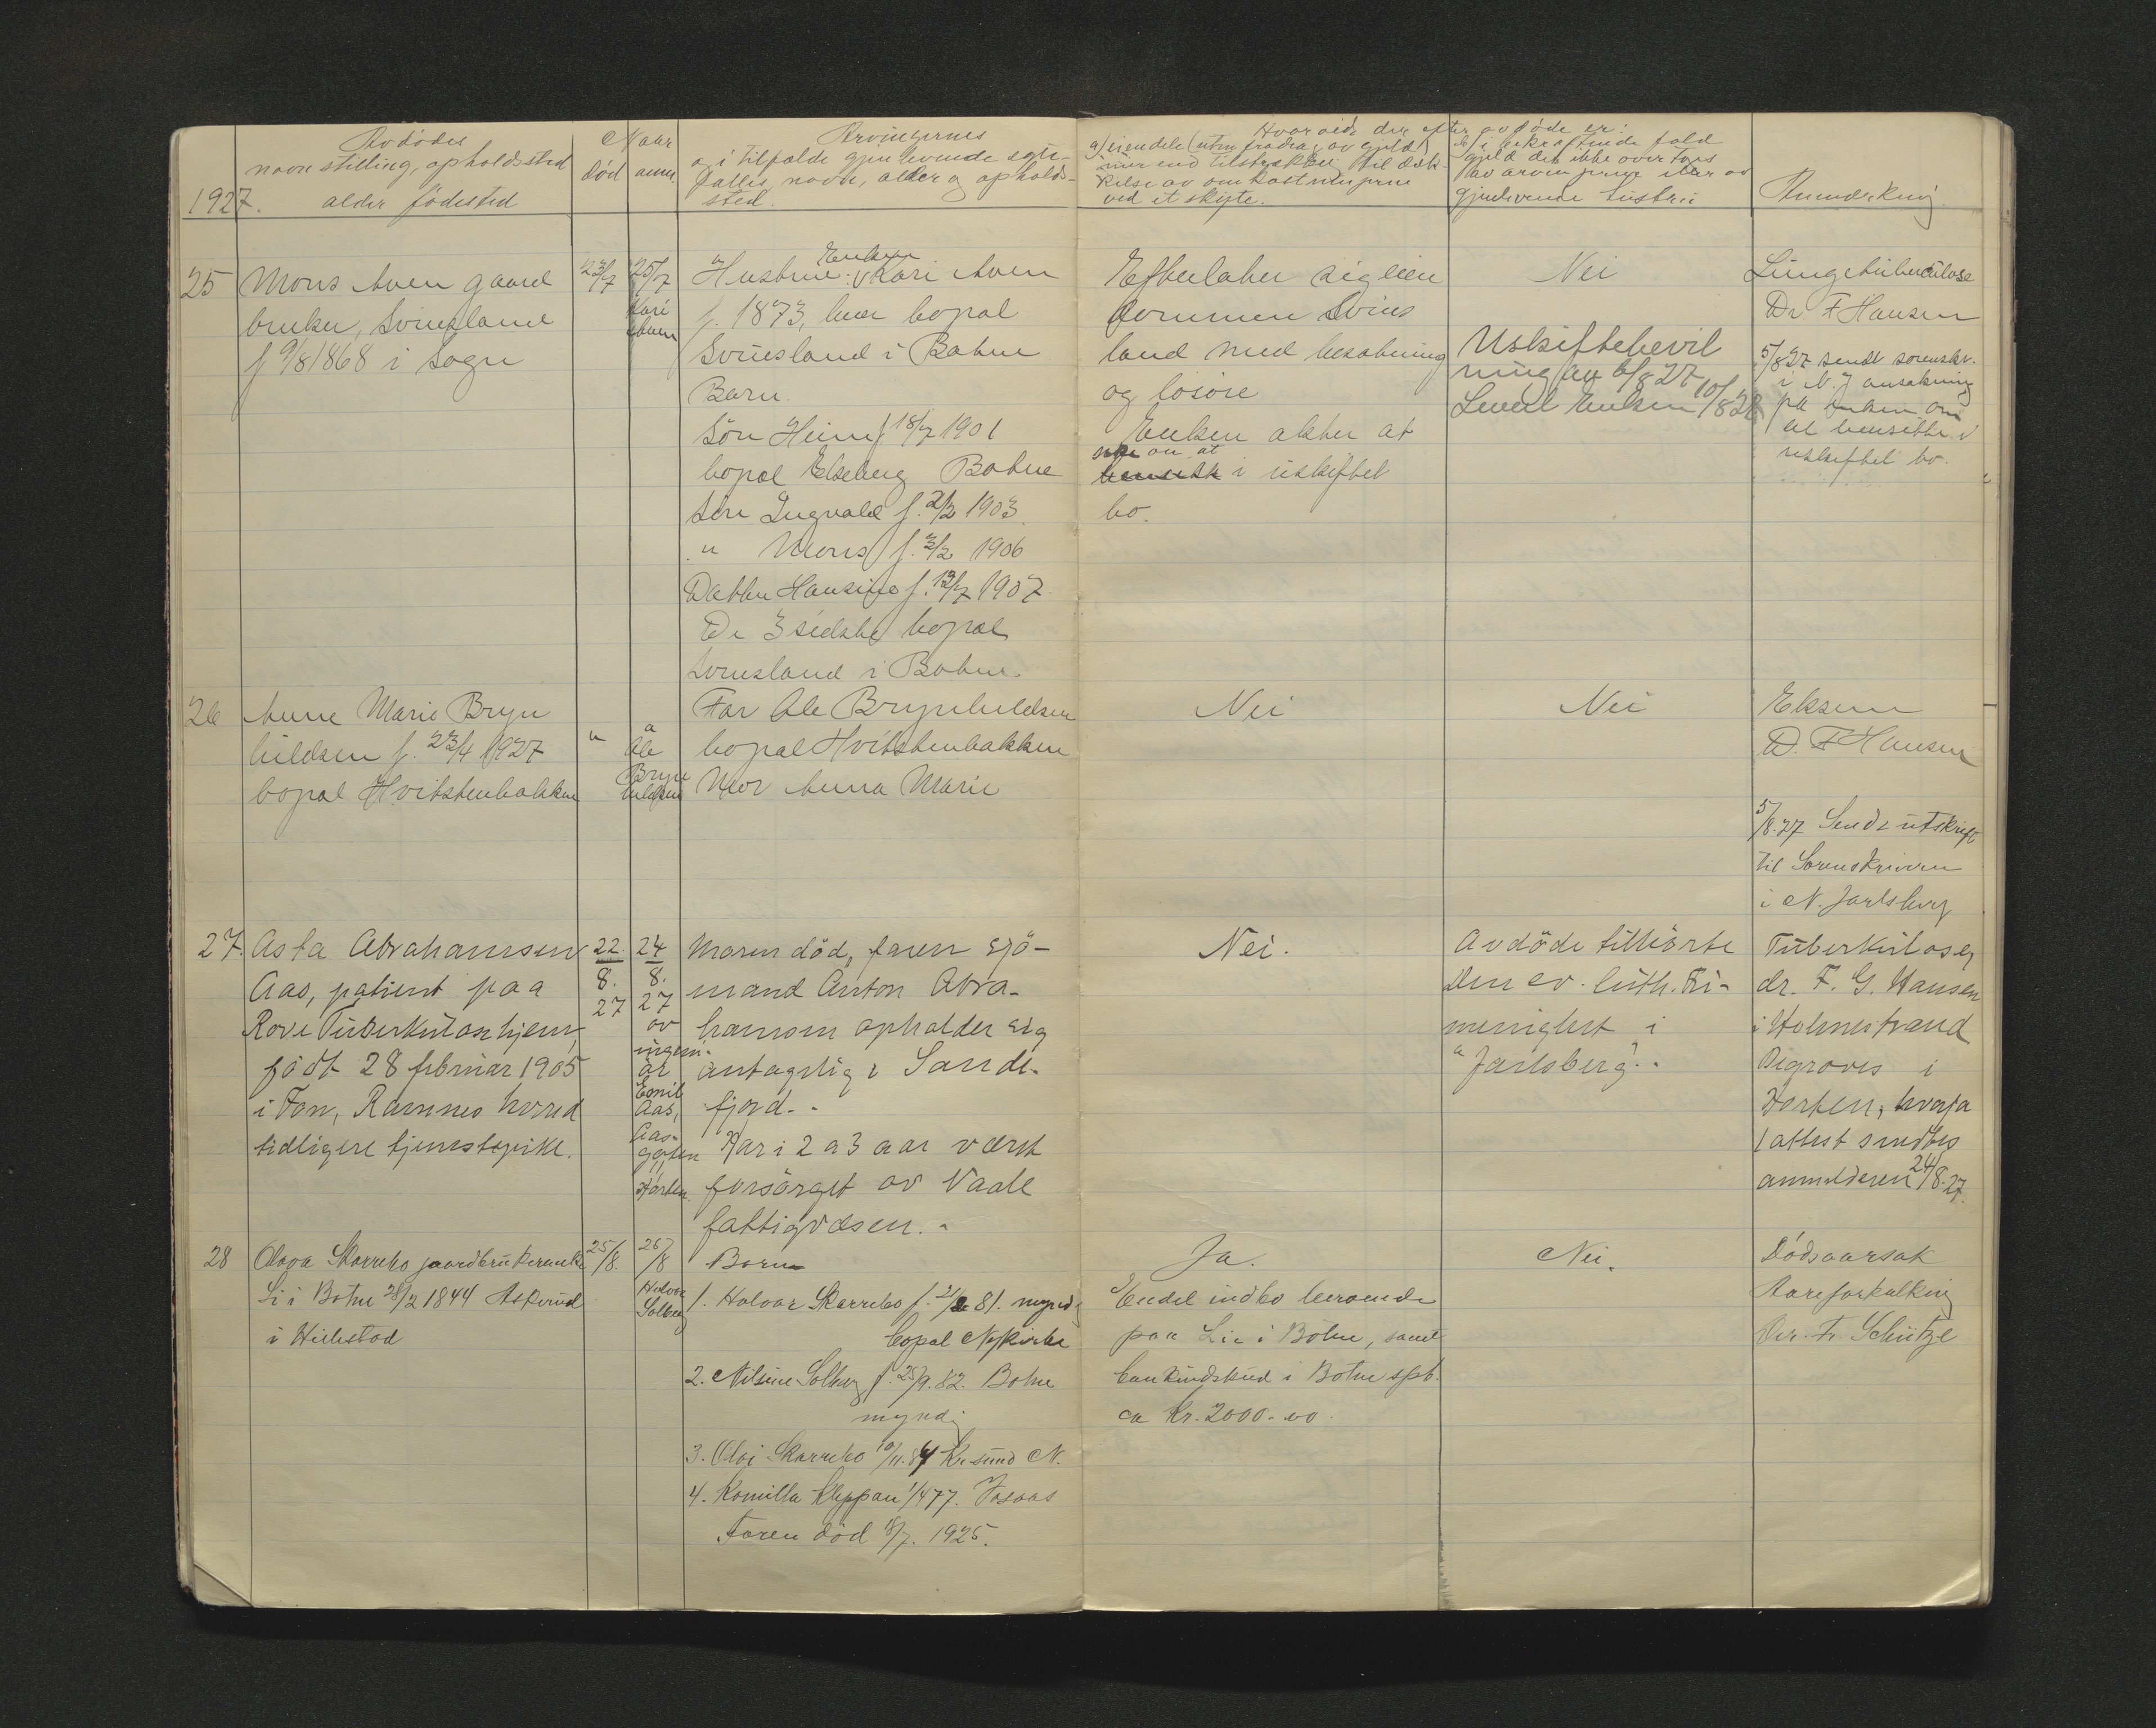 1927.
Avdödes
navn stilling, opholdssted
alder fødested
Naar
død anm.
Arvingernes
og i tilfælde gjenlevende egte-
fælles navn, alder og opholds-
sted.
Hvorvidt der efter avdøde er:
a) eiendele (uten fradrag av gjæld)
mer end tilstrækkelig til dæk-
kelse av omkostningerne
ved et skifte.
b) i bekræftende fald
gjæld det ikke overtages
av arvingerne eller av
gjenlevende
Anmerkning.
25
Mons Aven gaard
bruker, Svinesland
f 9/8 1868 i Sogn
23/7
25/7
Kari
Aven
Enken
Hustrue: Kari Aven
f. 1873, bopæl
Svinesland i Botne
Barn.
Sön Heine f 18/7 1901
bopæl Ekeberg Botne
Sön Ingvald f. 2/2 1903
" Mons f. 3/2 1906
Datter Hansine f. 13/7 1907
De 3 sidste bopæl
Svinesland i Botne.
Efterlater sig eien
dommen Svines
land med besætning
og løsøre
Enken akter at
søke om at
hensitte i uskiftet
bo.
Nei
Uskiftebevil
ning av 6/8 27
Levert Enken 10/8 27
Lungetuberculose
Dr F Hansen
5/8 27 sendt sorenskr.
i N. J ansøkning
fra enken om
at hensitte i
uskiftet bo.
26
Anne Marie Bryn
hildsen f. 23/4 1927
bopæl Hvitstenbakken
"
"
Ole
Bryn
hildsen
Far Ole Brynhildsen
bopæl Hvitstenbakken
Mor Anna Marie
Nei
Nei
Eksem
D. F Hansen
5/8.27 Sendt utskrift
til Sorenskriveren
i N. Jarlsberg
27.
Asta Abrahamsen
Aas, patient paa
Rove Tuberkulosehjem,
født 28 februar 1905
i Fon, Ramnes herred
tidligere tjenestepike.
22.
8.
27
24
8.
27
av
ingeni-
ør
Emil
Aas,
Aas-
gaten
Horten.
Moren död, faren sjö-
mand Anton Abra-
hamsen opholder sig
antagelig i Sande-
fjord.
Har i 2 a 3 aar været
forsörget av Vaale
fattigvæsen.
Nei.
Avdöde tilhørte
Den ev. luth. Fri-
menighet i
"Jarlsberg".
Tuberkulose,
dr. F. G. Hansen
i Holmestrand
Begraves i
Horten, hvorfor
attest sendtes
anmelderen 24/8.27.
28
Olava Skarrebo gaardbrukerenke
Li i Botne 28/2 1844 Askerud
i Hillestad
25/8.
26/8
Halvor
Solberg
Barn
1. Halvor Skarrebo f. 2/2 81. myndig
bopæl Nykirke
2. Nilsine Solberg f. 25/9. 82. Botne
myndig
3. Olai Skarrebo 10/11. 84 Kr.sund N.
4. Komilla Kleppan 1/4 77. Vasaas
Faren död 18/7. 1925.
Ja.
Endel indbo beroende
paa Lie i Botne, samt
bankindskud i Botne spb.
ca Kr. 2000.00.
Nei.
Dödsaarsak
Aareforkalkning
Dr. Fr. Schütze